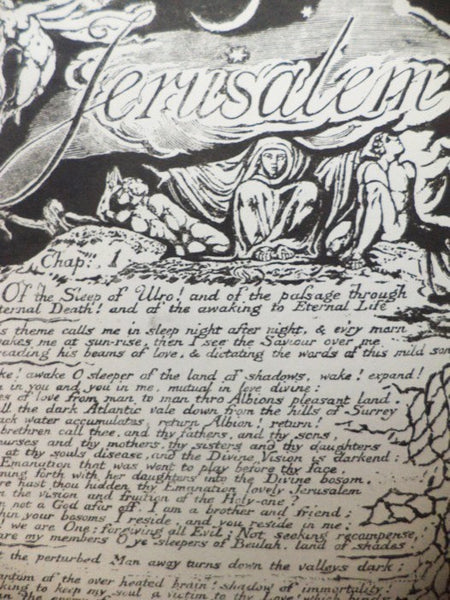 Jerusalem
Chap: 1
Of the Sleep of Ulro! and of the passage through
ternal Death! and of the awaking to Eternal Life
s theme calls me in sleep night after night, & ev'ry morn
akes me at sun-rise, then I see the Saviour over me
reading his beams of love, & dictating the words of this mild son
ke! awake O sleeper of the land of shadows, wake! expand!
in in you and you in me, mutual in love divine:
es of love from man to man thro Albions pleasant land.
ll the dark Atlantic vale down from the hills of Surrey
ack water accumulates, return Albion! return!
brethren call thee, and thy fathers, and thy sons,
nurses and thy mothers, thy sisters and thy daughters
at thy souls disease, and the Divine Vision is darkend:
Emanation that was wont to play before thy face,
ming forth with her daughters into the Divine bosom
re hast thou hidden thy Emanation lovely Jerusalem
m the vision and fruition of the Holy-one?
m not a God afar off, I am a brother and friend;
hin your bosoms I reside, and you reside in me:
we are One; forgiving all Evil; Not seeking recompense,
are my members O ye sleepers of Beulah, land of shades
t the perturbed Man away turns down the valleys dark;
antom of the over heated brain! shadow of immortality!
king to keep my soul a victim to thy Love! which binds